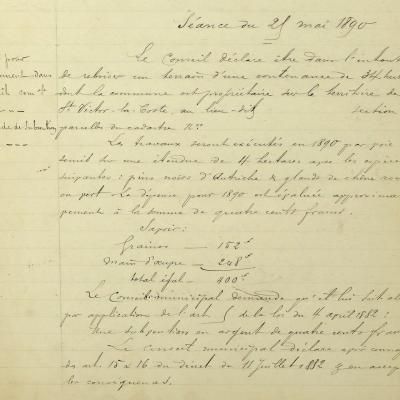 Séance du 25 mai 1890
pour
dans
Le Conseil déclare être dans l'intent
de reboiser un terrain d'une contenance de 34 hect
dont la commune est propriétaire sur le territoire de
St Victor-la-Coste, au lieu-dit section
parcelles du cadastre No
Les travaux seront exécutés en 1890 par voie
semis sur une étendue de 4 hectares avec les espèces
suivantes : pins noirs d'Autriche & glands de chêne
La dépense pour 1890 est évaluée approxima
à la somme de quatre cents francs.
Savoir :
Graines — 152 f
Main d'œuvre — 248 f
total égal — 400 f
Le Conseil municipal demande qu'il lui soit al
par application de l'art 5 de la loi du 4 avril 1882 :
Une subvention en argent de quatre cents francs
Le conseil municipal déclare avoir connai
des art. 15 & 16 du décret du 11 Juillet 1882 & en accep
les conséquences.